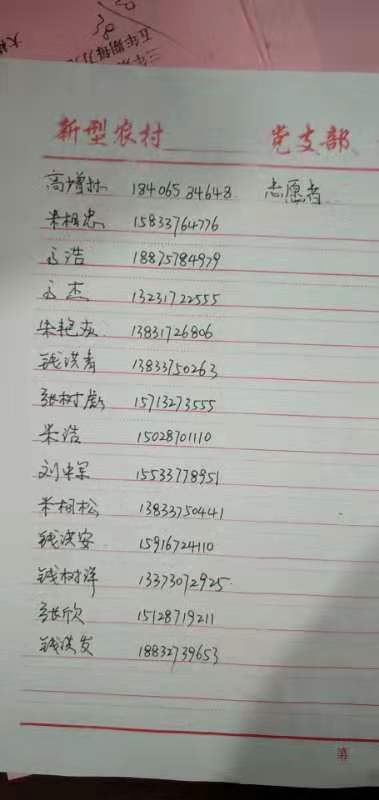 新型农村 党支部、
高增林 18406584648 志愿者
米相忠 15833764776
高浩 18875784979
高杰 13231722555
朱艳友 13831726806
钱洪青 13833750263
张树彪 15713273555
米浩 15028701110
刘中军 15533778951
米树松 13833750441
钱洪安 15916724110
钱树洋 13373072925
张欣 15128719211
钱洪发 18832739653
第